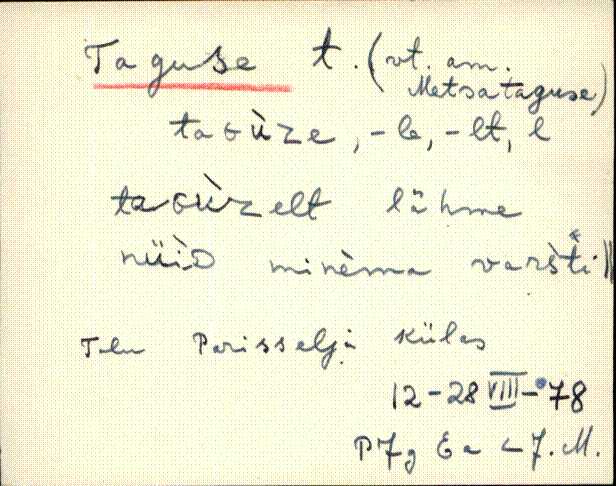 Taguse t. (vt. am.
Metsataguse)
taɢùze, -le, -lt, l
taɢùzelt lähme
nüìᴅ minèma varsti ||
Talu Parisselja külas
12-28 VIII - 78